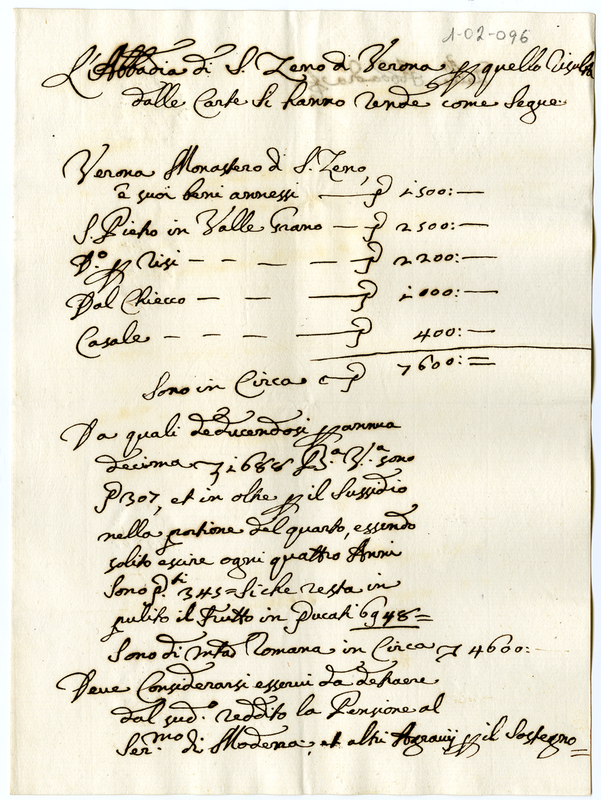 1-02-096
L'Abbadia di S. Zeno di Verona p quello risulta
dalle Carte si hanno rende come segue
Verona Monastero di S. Zeno,
e suoi beni annessi — D 1500:—
S. Pietro in Valle Grano — D 2500:—
D.o p risi — — — — D 2200:—
Dal Chiecco — — — — D 1000:—
Casale — — — — D 400:—
Sono in Circa D 7600:=
Da quali deducendosi p annua
decima 1688 sono
D 1307, et in oltre p il Sussidio
nella portione del quarto, essendo
solito escire ogni quattro Anni
Sono D.ti 345= Si che resta in
pulito il Frutto in Ducati 6948=
Sono di Mta Romana in Circa 4600:
Deve Considerarsi esservi da detraere
dal sud.o reddito la Pensione al
Ser.mo di Modena, et altri Agravij p il Sostegno=